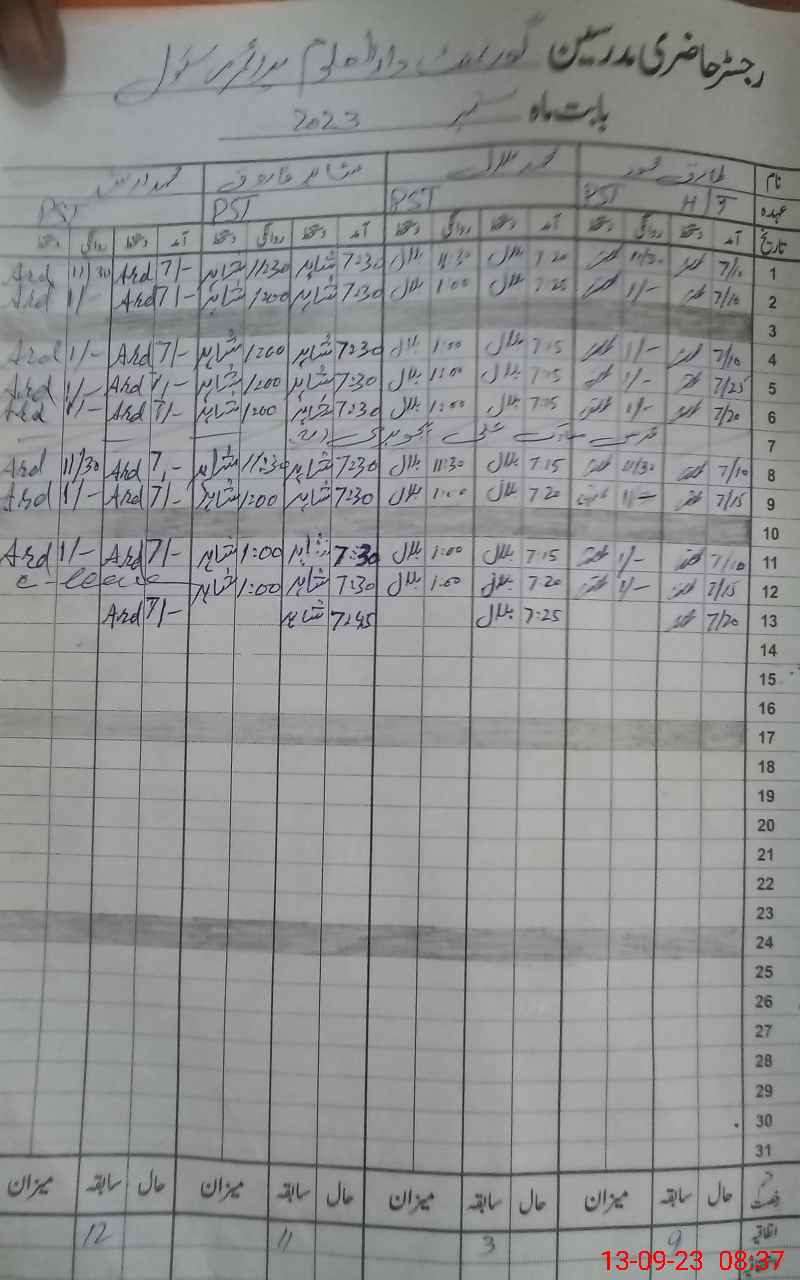 رجسٹر حاضری مدرسین گورنمنٹ دارالعلوم پرائمری سکول
بابت ماہ ستمبر 2023
نام طارق محمود محمد بلال شاہد فاروق محمد ارشد
عہدہ PST H/T PST PST PST
تاریخ آمد دستخط روانگی دستخط آمد دستخط روانگی دستخط آمد دستخط روانگی دستخط آمد دستخط روانگی دستخط
1 7/10 11/30 7:20 بلال 11:30 بلال 7:30 شاہد 11:30 شاہد 7/- Ard 11/30 Ard
2 7/10 1/- 7:20 بلال 1:00 بلال 7:30 شاہد 1:00 شاہد 7/- Ard 1/- Ard
3
4 7/10 1/- 7:15 بلال 1:00 بلال 7:30 شاہد 1:00 شاہد 7/- Ard 1/- Ard
5 7/25 1/- 7:15 بلال 1:00 بلال 7:30 شاہد 1:00 شاہد 7/- Ard 1/- Ard
6 7/20 1/- 7:15 بلال 1:00 بلال 7:30 شاہد 1:00 شاہد 7/- Ard 1/- Ard
7 عرس مبارک علی ہجویری
8 7/10 11/30 7:15 بلال 11:30 بلال 7:30 شاہد 11:30 شاہد 7/- Ard 11/30 Ard
9 7/15 1/- 7:20 بلال 1:00 بلال 7:30 شاہد 1:00 شاہد 7/- Ard 1/- Ard
10
11 7/10 1/- 7:15 بلال 1:00 بلال 7:30 شاہد 1:00 شاہد 7/- Ard 1/- Ard
12 7/15 1/- 7:20 بلال 1:00 بلال 7:30 شاہد 1:00 شاہد c-leave
13 7/20 7:25 بلال 7:45 شاہد 7/- Ard
14
15
16
17
18
19
20
21
22
23
24
25
26
27
28
29
30
31
رخصت حال سابقہ میزان حال سابقہ میزان حال سابقہ میزان حال سابقہ میزان
اتفاقیہ 9 3 11 12
13-09-23 08:37